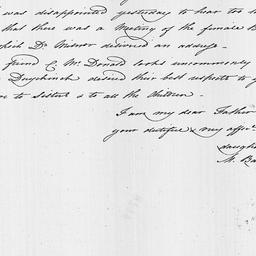 was disappointed yesterday to hear too
that there was a Meeting of the female
which Dr Milnor delivered an address -
friend C. Mc Donald looks uncommonly
Duyckinck desired their best respects to
to sisters & to all the Children -
I am my dear Father
your dutiful & my affec
daughter
M.